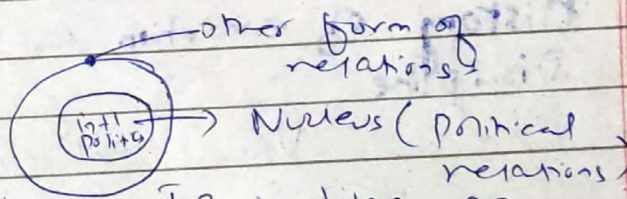 other form of
relations.
int'l
politics
→ Nucleus (Political
relations)